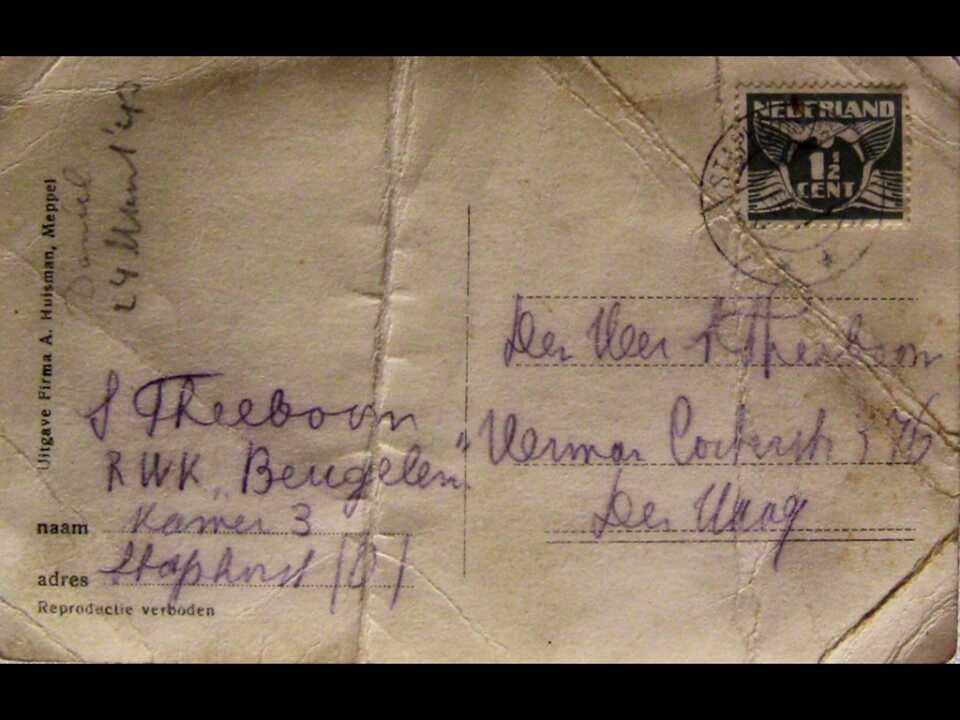 Uitgave Firma A. Huisman, Meppel
24 Maart '40
NEDERLAND
1½
CENT
S Theeboom
RWK „Beugelen"
naam Kamer 3
adres Staphorst (O)
Reproductie verboden
Den Heer Theeboom
Herman Costerstr
Den Haag